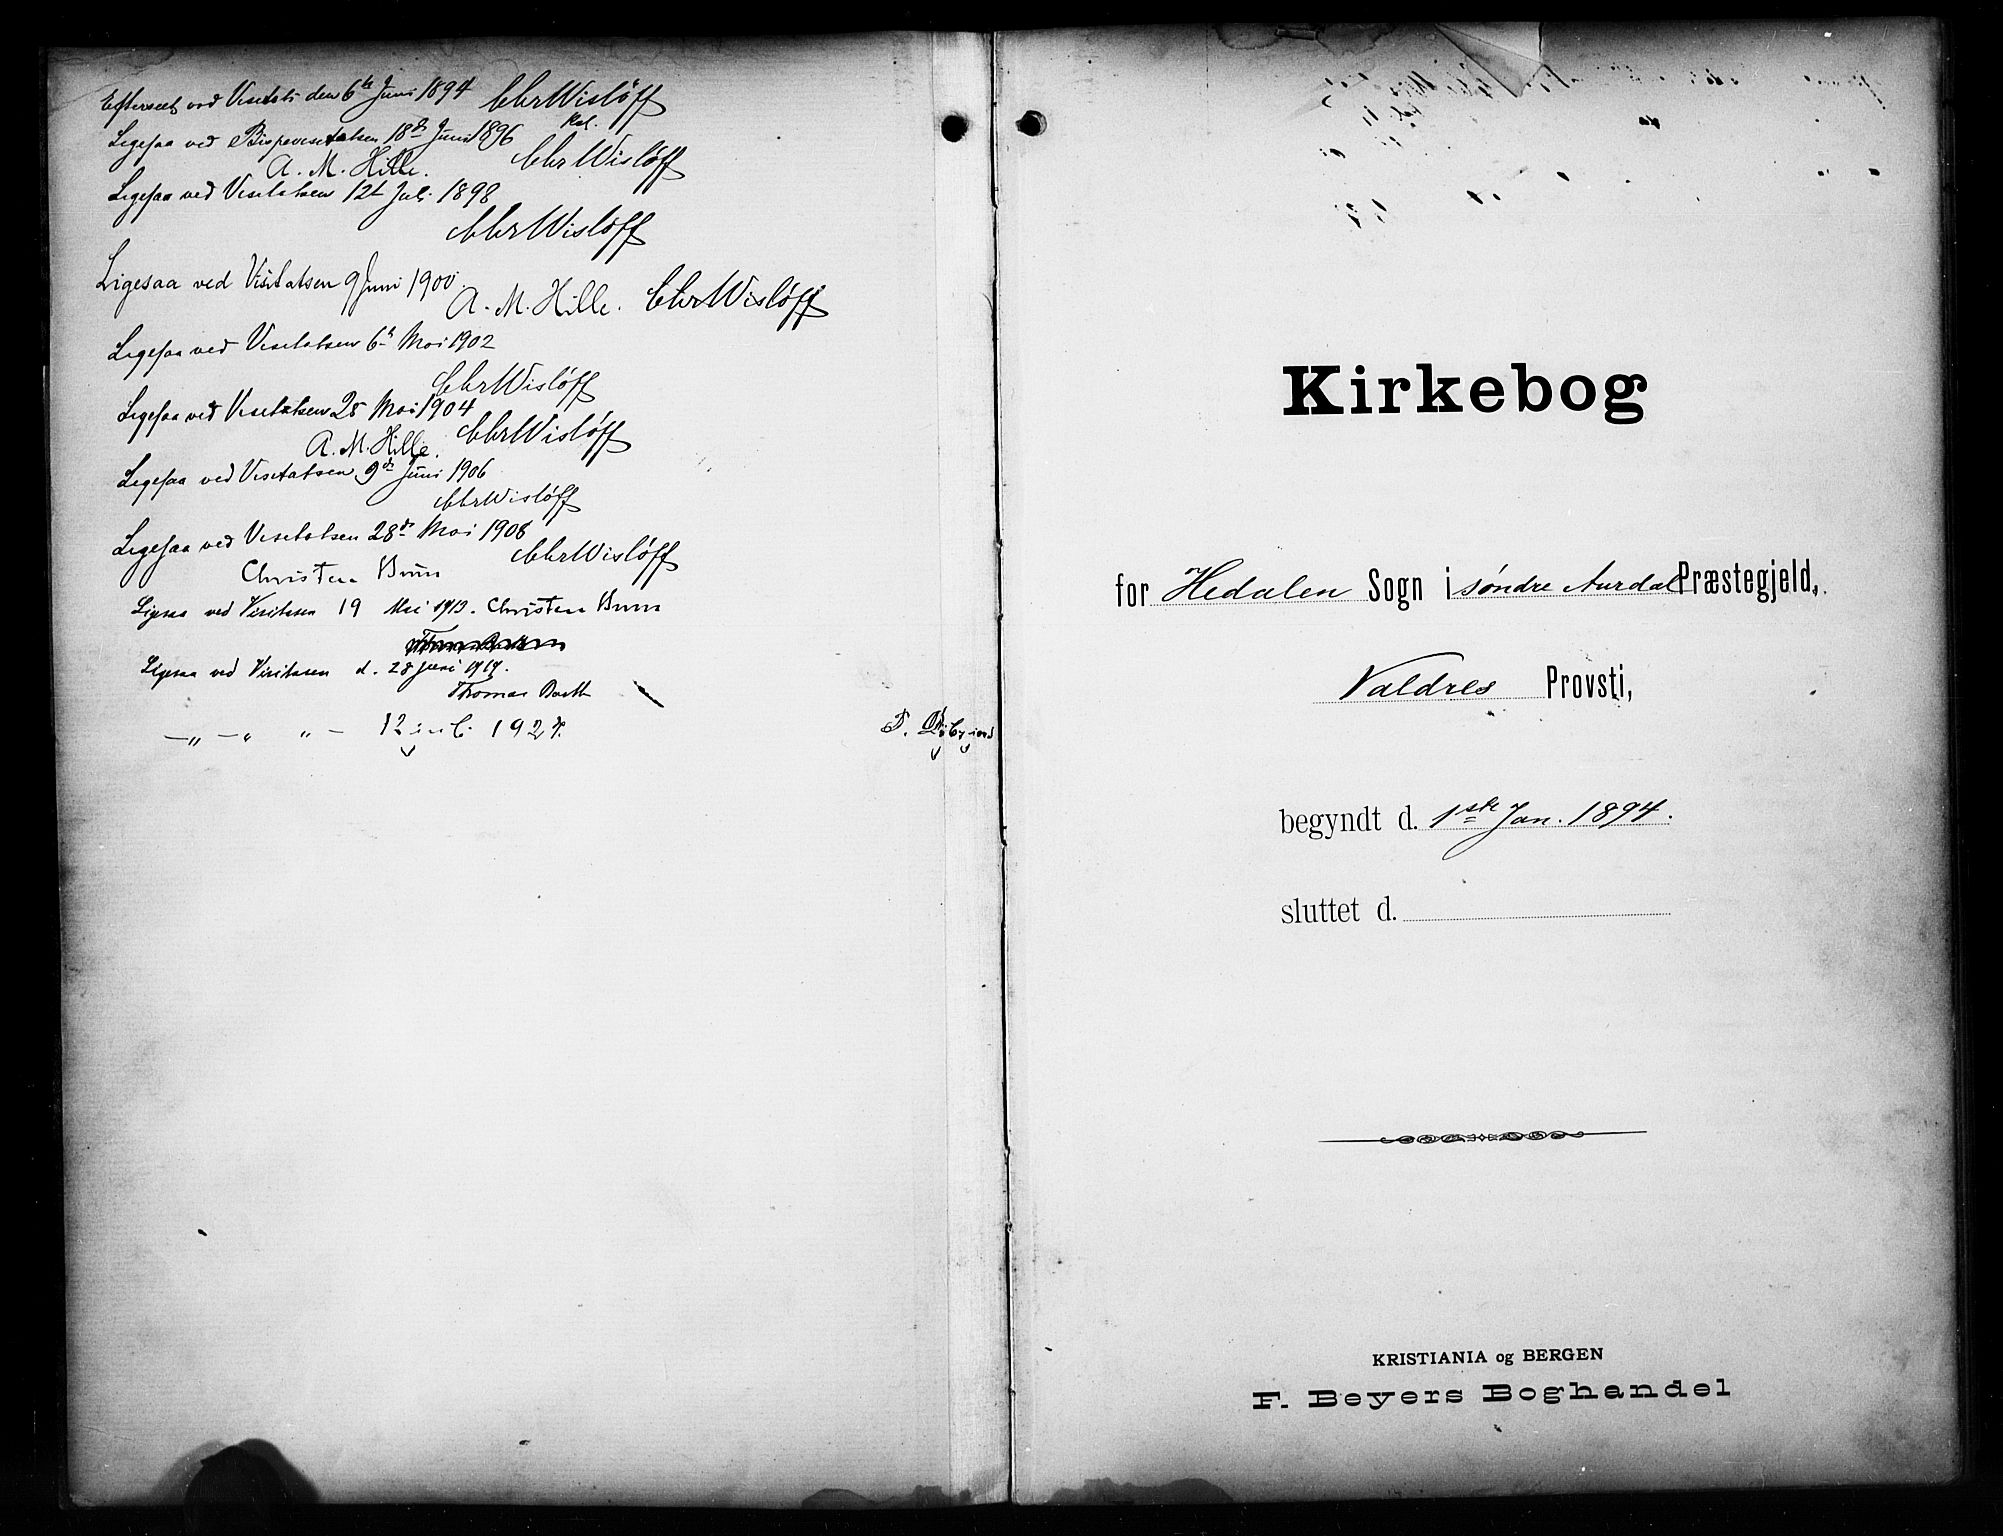 Efterseet ved Visitats den 6te Juni 1894 Chr Wisløff
Ligesaa ved Bispevisitatsen 18de Juni 1896
A. M. Hille. Chr Wisløff
Ligesaa ved Visitatsen 12t Juli 1898
Chr Wisløff
Ligesaa ved Visitatsen 9 Juni 1900.
A. M. Hille. Chr Wisløff
Ligesaa ved Visitatsen 6te Mai 1902
Chr Wisløff
Ligesaa ved Visitatsen 28 Mai 1904
A. M. Hille. Chr Wisløff
Ligesaa ved Visitatsen 9de Juni 1906
Chr Wisløff
Ligesaa ved Visitatsen 28de Mai 1908
Christen Brun Chr Wisløff
Ligesaa ved Visitasen 19 Mai 1913. Christen Brun
Ligesaa ved Visitasen d. 28 juni 1919.
Thomas Barth
—„— „ „— 12 juli 1927.
Kirkebog
for Hedalen Sogn i søndre Aurdal Præstegjeld,
Valdres Provsti,
begyndt d. 1ste Jan. 1894.
sluttet d.
KRISTIANIA og BERGEN
F. Beyers Boghandel